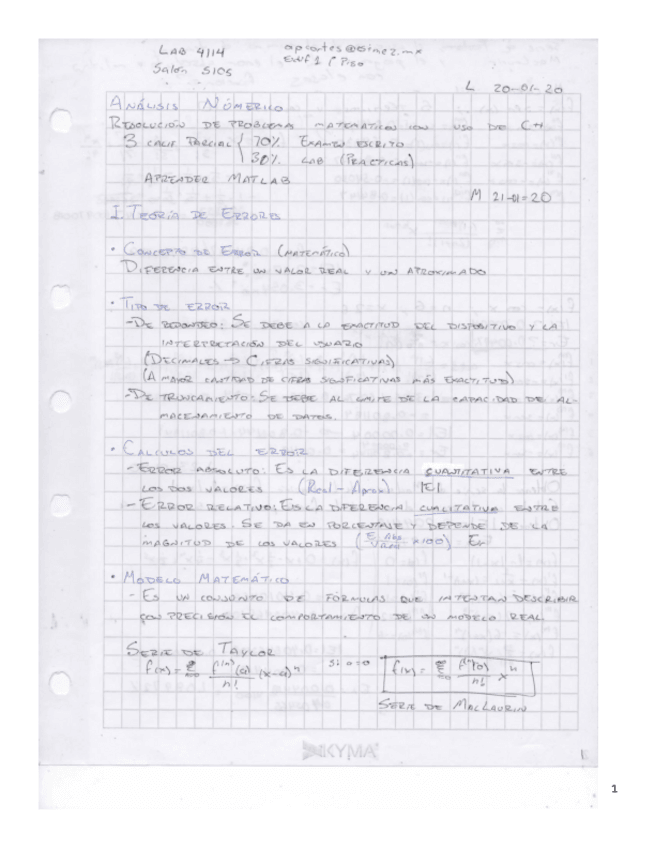 LAB 4114
Salón 5105
apcortes@simez.mx
Edif 1 1° Piso
L 20-01-20
ANÁLISIS NÚMERICO
RESOLUCIÓN DE PROBLEMAS MATEMÁTICOS CON USO DE C++
3 CALIF PARCIAL { 70% EXAMEN ESCRITO
30% LAB (PRACTICAS)
APRENDER MATLAB
M 21-01-20
I TEORÍA DE ERRORES
• CONCEPTO DE ERROR (MATEMÁTICO)
DIFERENCIA ENTRE UN VALOR REAL Y UN APROXIMADO
• TIPO DE ERROR
- DE REDONDEO: SE DEBE A LA EXACTITUD DEL DISPOSITIVO Y LA
INTERPRETACIÓN DEL USUARIO
(DECIMALES → CIFRAS SIGNIFICATIVAS)
(A MAYOR CANTIDAD DE CIFRAS SIGNIFICATIVAS MÁS EXACTITUD)
- DE TRUNCAMIENTO: SE DEBE AL LIMITE DE LA CAPACIDAD DE AL-
MACENAMIENTO DE DATOS.
• CALCULOS DEL ERROR
- ERROR ABSOLUTO: ES LA DIFERENCIA CUANTITATIVA ENTRE
LOS DOS VALORES (Real - Aprox) |E|
- ERROR RELATIVO: ES LA DIFERENCIA CUALITATIVA ENTRE
LOS VALORES. SE DA EN PORCENTAJE Y DEPENDE DE LA
MAGNITUD DE LOS VALORES (E Abs / V Real × 100) Er
• MODELO MATEMÁTICO
- ES UN CONJUNTO DE FÓRMULAS QUE INTENTAN DESCRIBIR
CON PRECISIÓN EL COMPORTAMIENTO DE UN MODELO REAL
SERIE DE TAYLOR
f(x) = Σ f⁽ⁿ⁾(a) / n! (x-a)ⁿ si a=0 f(x) = Σ fⁿ(0) / n! xⁿ
SERIE DE MACLAURIN
KYMA
1
1